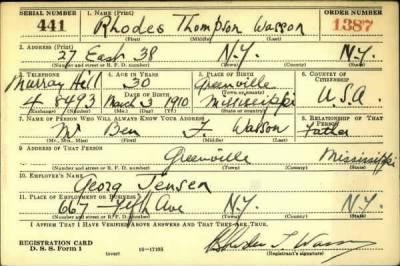 SERIAL NUMBER 1. NAME (Print) ORDER NUMBER
441 Rhodes Thompson Wasson 1387
(First) (Middle) (Last)
2. ADDRESS (Print)
27 East 38 N.Y. N.Y.
(Number and street or R. F. D. number) (Town) (County) (State)
3. TELEPHONE 4. AGE IN YEARS 5. PLACE OF BIRTH 6. COUNTRY OF CITIZENSHIP
Murray Hill 30 Greenville
DATE OF BIRTH (Town or county)
4 8493 March 3 1910 Mississippi U.S.A.
(Exchange) (Number) (Mo.) (Day) (Yr.) (State or country)
7. NAME OF PERSON WHO WILL ALWAYS KNOW YOUR ADDRESS 8. RELATIONSHIP OF THAT PERSON
Mr Ben F Wasson Father
(Mr., Mrs., Miss) (First) (Middle) (Last)
9. ADDRESS OF THAT PERSON
Greenville Mississippi
(Number and street or R. F. D. number) (Town) (County) (State)
10. EMPLOYER'S NAME
Georg Jensen
11. PLACE OF EMPLOYMENT OR BUSINESS
667 Fifth Ave N.Y. N.Y.
(Number and street or R. F. D. number) (Town) (County) (State)
I AFFIRM THAT I HAVE VERIFIED ABOVE ANSWERS AND THAT THEY ARE TRUE.
REGISTRATION CARD
D. S. S. Form 1 (over) 16-17105 Rhodes T Wasson
(Registrant's signature)